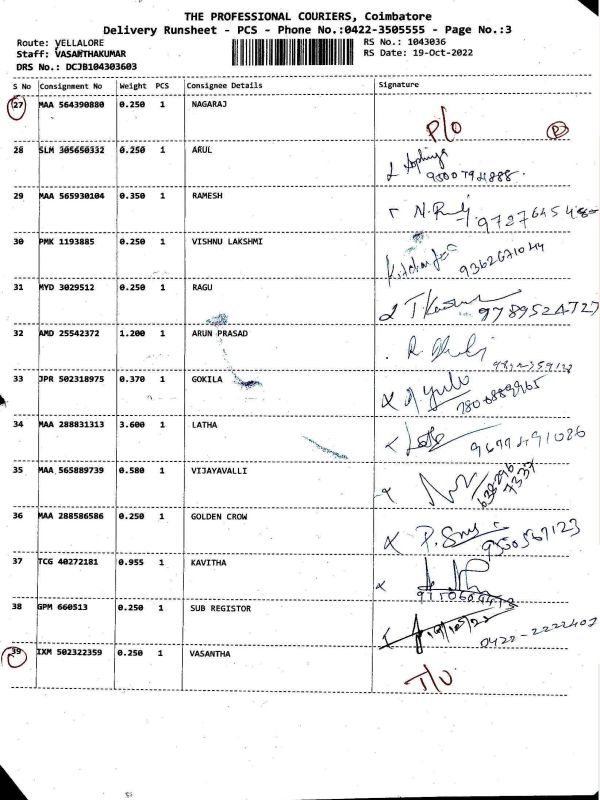 THE PROFESSIONAL COURIERS, Coimbatore
Delivery Runsheet - PCS - Phone No.:0422-3505555 - Page No.:3
Route: VELLALORE
RS No.: 1043036
Staff: VASANTHAKUMAR
RS Date: 19-Oct-2022
DRS No.: DCJB104303603
S No Consignment No Weight PCS Consignee Details Signature
27 MAA 564390880 0.250 1 NAGARAJ
P/O
28 SLM 305650332 0.250 1 ARUL
29 MAA 565930104 0.350 1 RAMESH
30 PMK 1193885 0.250 1 VISHNU LAKSHMI
9362671044
31 MYD 3029512 0.250 1 RAGU
9789524727
32 AMD 25542372 1.200 1 ARUN PRASAD
33 JPR 502318975 0.370 1 GOKILA
34 MAA 288831313 3.600 1 LATHA
9677491086
35 MAA 565889739 0.580 1 VIJAYAVALLI
36 MAA 288586586 0.250 1 GOLDEN CROW
9500567123
37 TCG 40272181 0.955 1 KAVITHA
38 GPM 660513 0.250 1 SUB REGISTOR
19/10/22
0422-2222402
39 IXM 502322359 0.250 1 VASANTHA
T/U